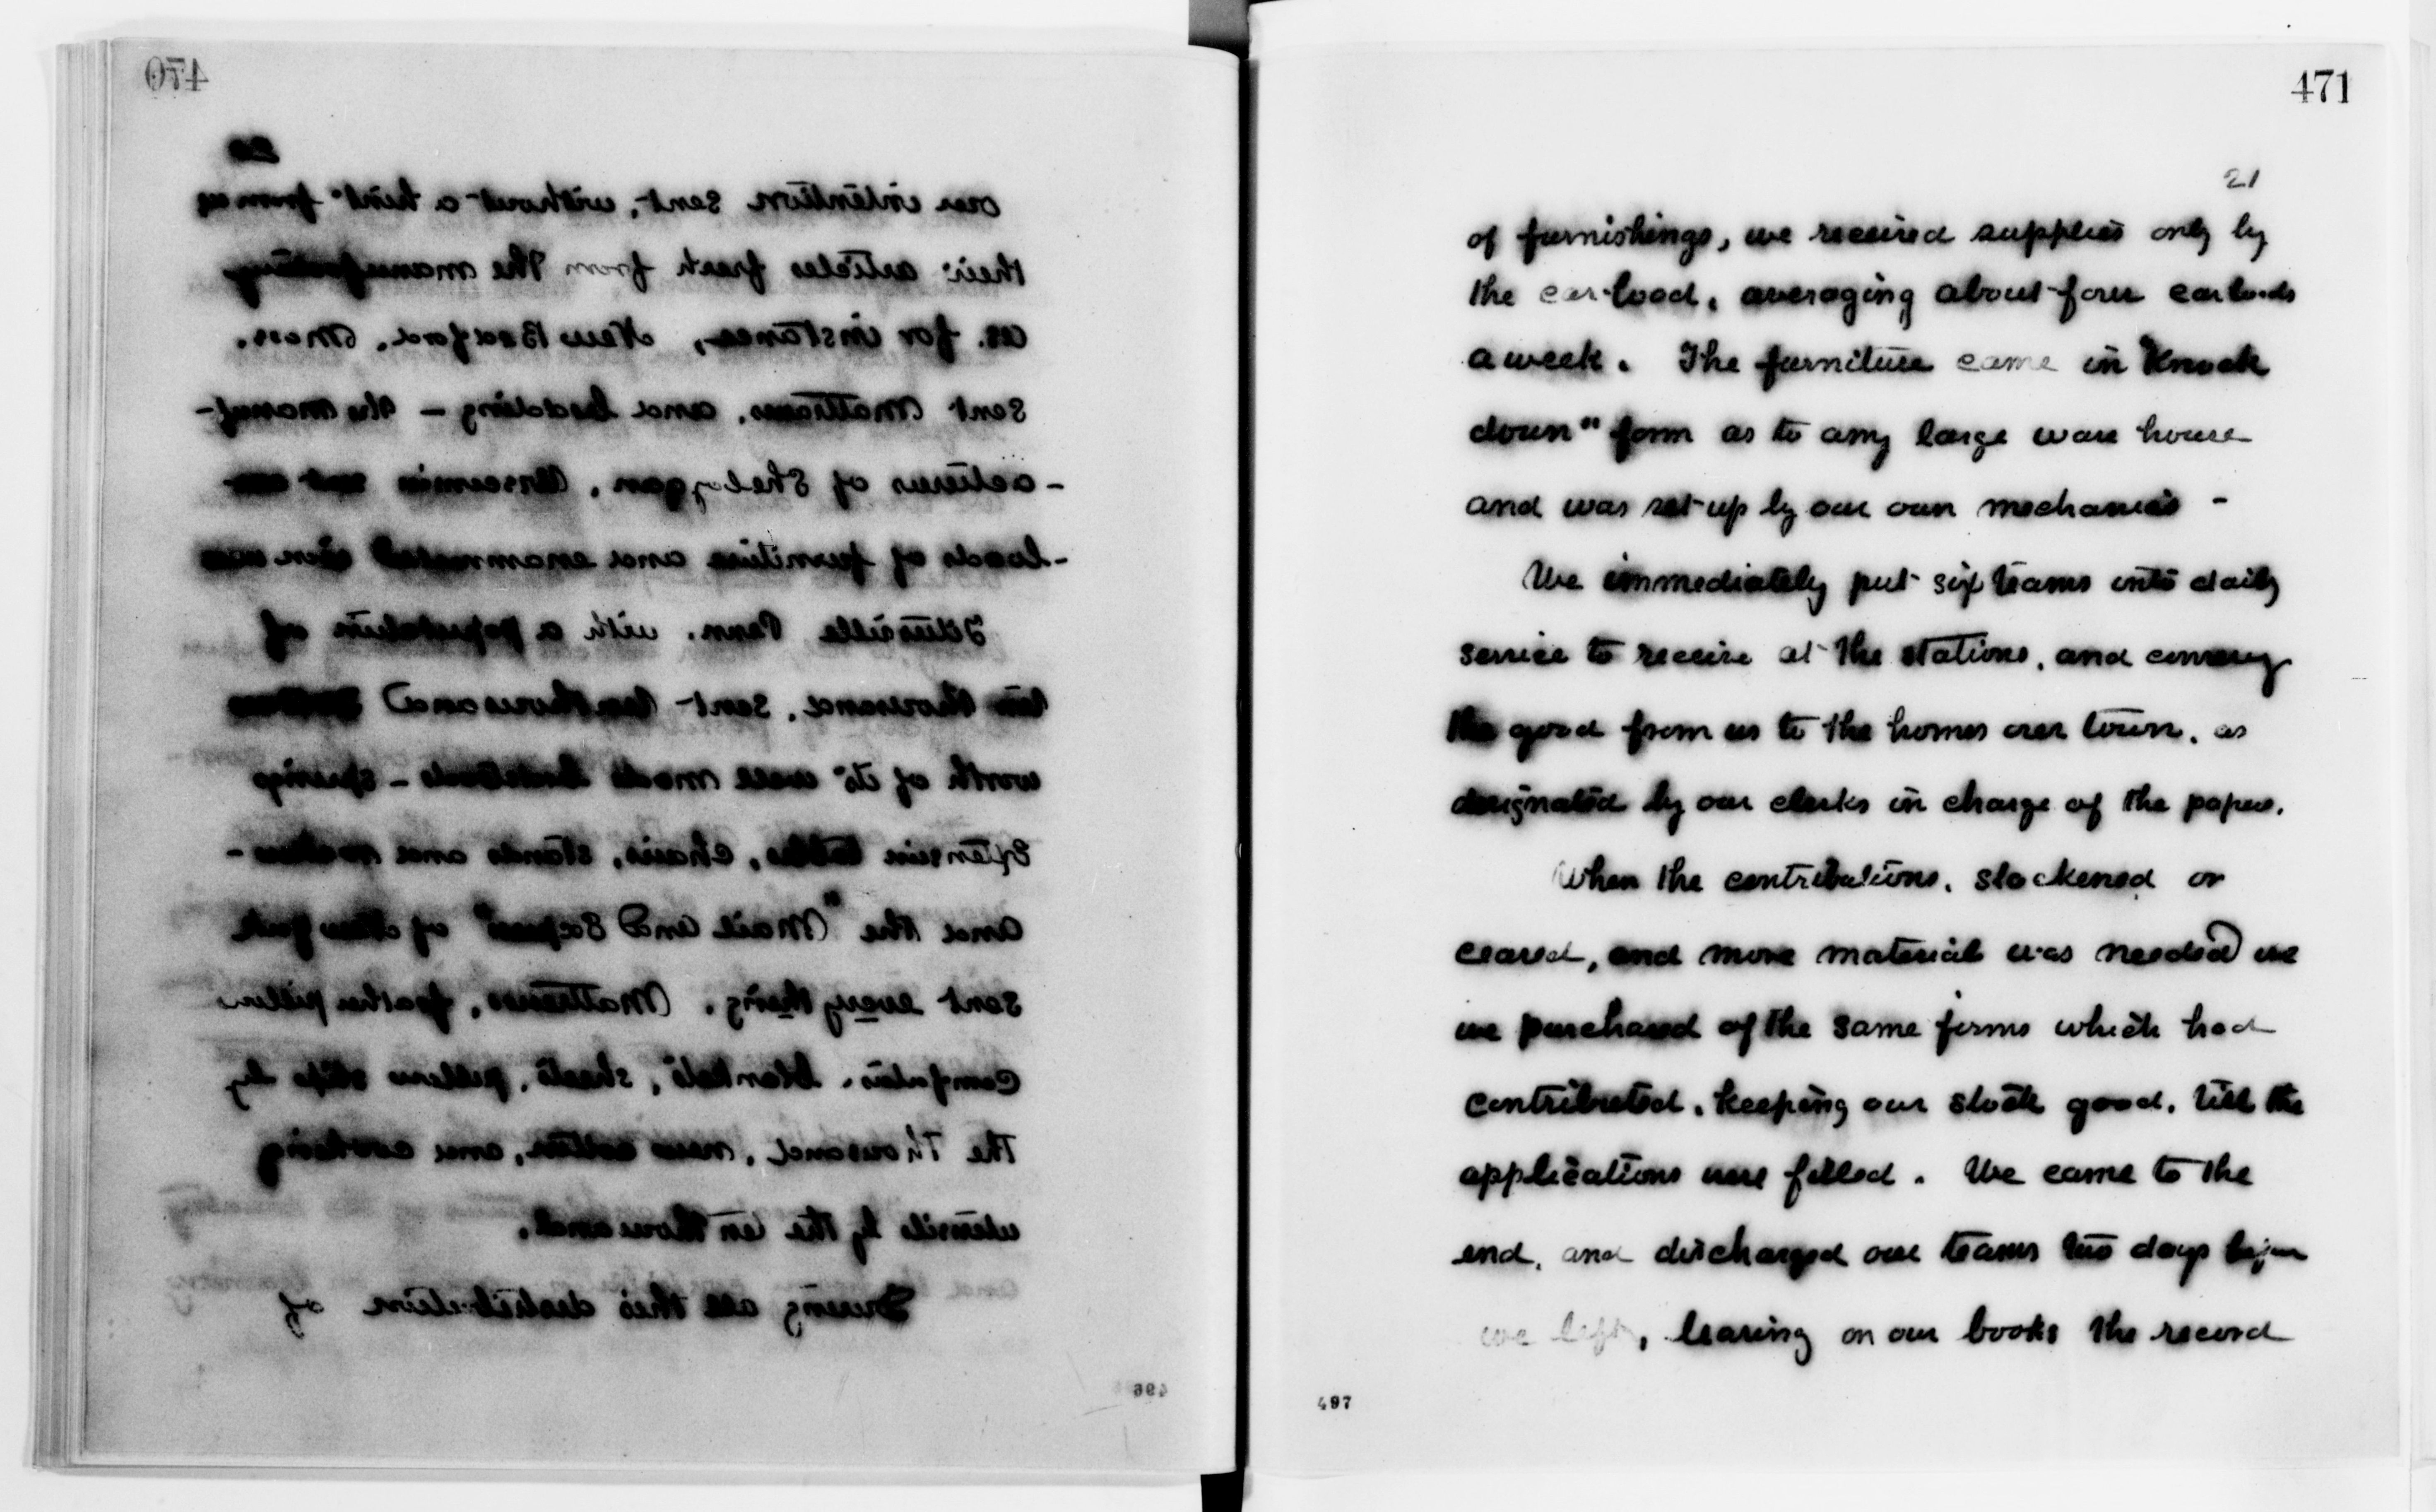 470
20
our intention sent, without a hint from us
their articles fresh from the manufactory
as. for instance, New Bedford. Mass.
sent Mattress. and bedding - the manuf-
-acturers of Sheboygan, Wisconsin sent car
-loads of furniture and enammeled iron ware
Titusville Penn. with a population of
ten thousand. sent ten thousand
worth of its well made bedsteads - springs
Extension tables, chairs, stands and rockers -
and the "Mail and Express" of New York
sent everything. Mattress, feather pillows
Comforters. blankets, sheets, pillow slips by
the Thousand, new cotton, and cooking
utensils by the ten thousand.
During all this distribution of
496
471
21
of furnishings, we received supplies only by
the car-load, averaging about four carloads
a week. The furniture came in "Knock
down" form as to any large ware house
and was set up by our own mechanics -
We immediately put six teams into daily
service to receive at the stations, and convey
the good from us to the homes over town, as
designated by our clerks in charge of the papers.
When the contributions, slackened or
ceased, and more material was needed we
we purchased of the same firms which had
contributed, keeping our stock good, till the
applications were filled. We came to the
end, and discharged our teams two days before
we left, leaving on our books the record
497